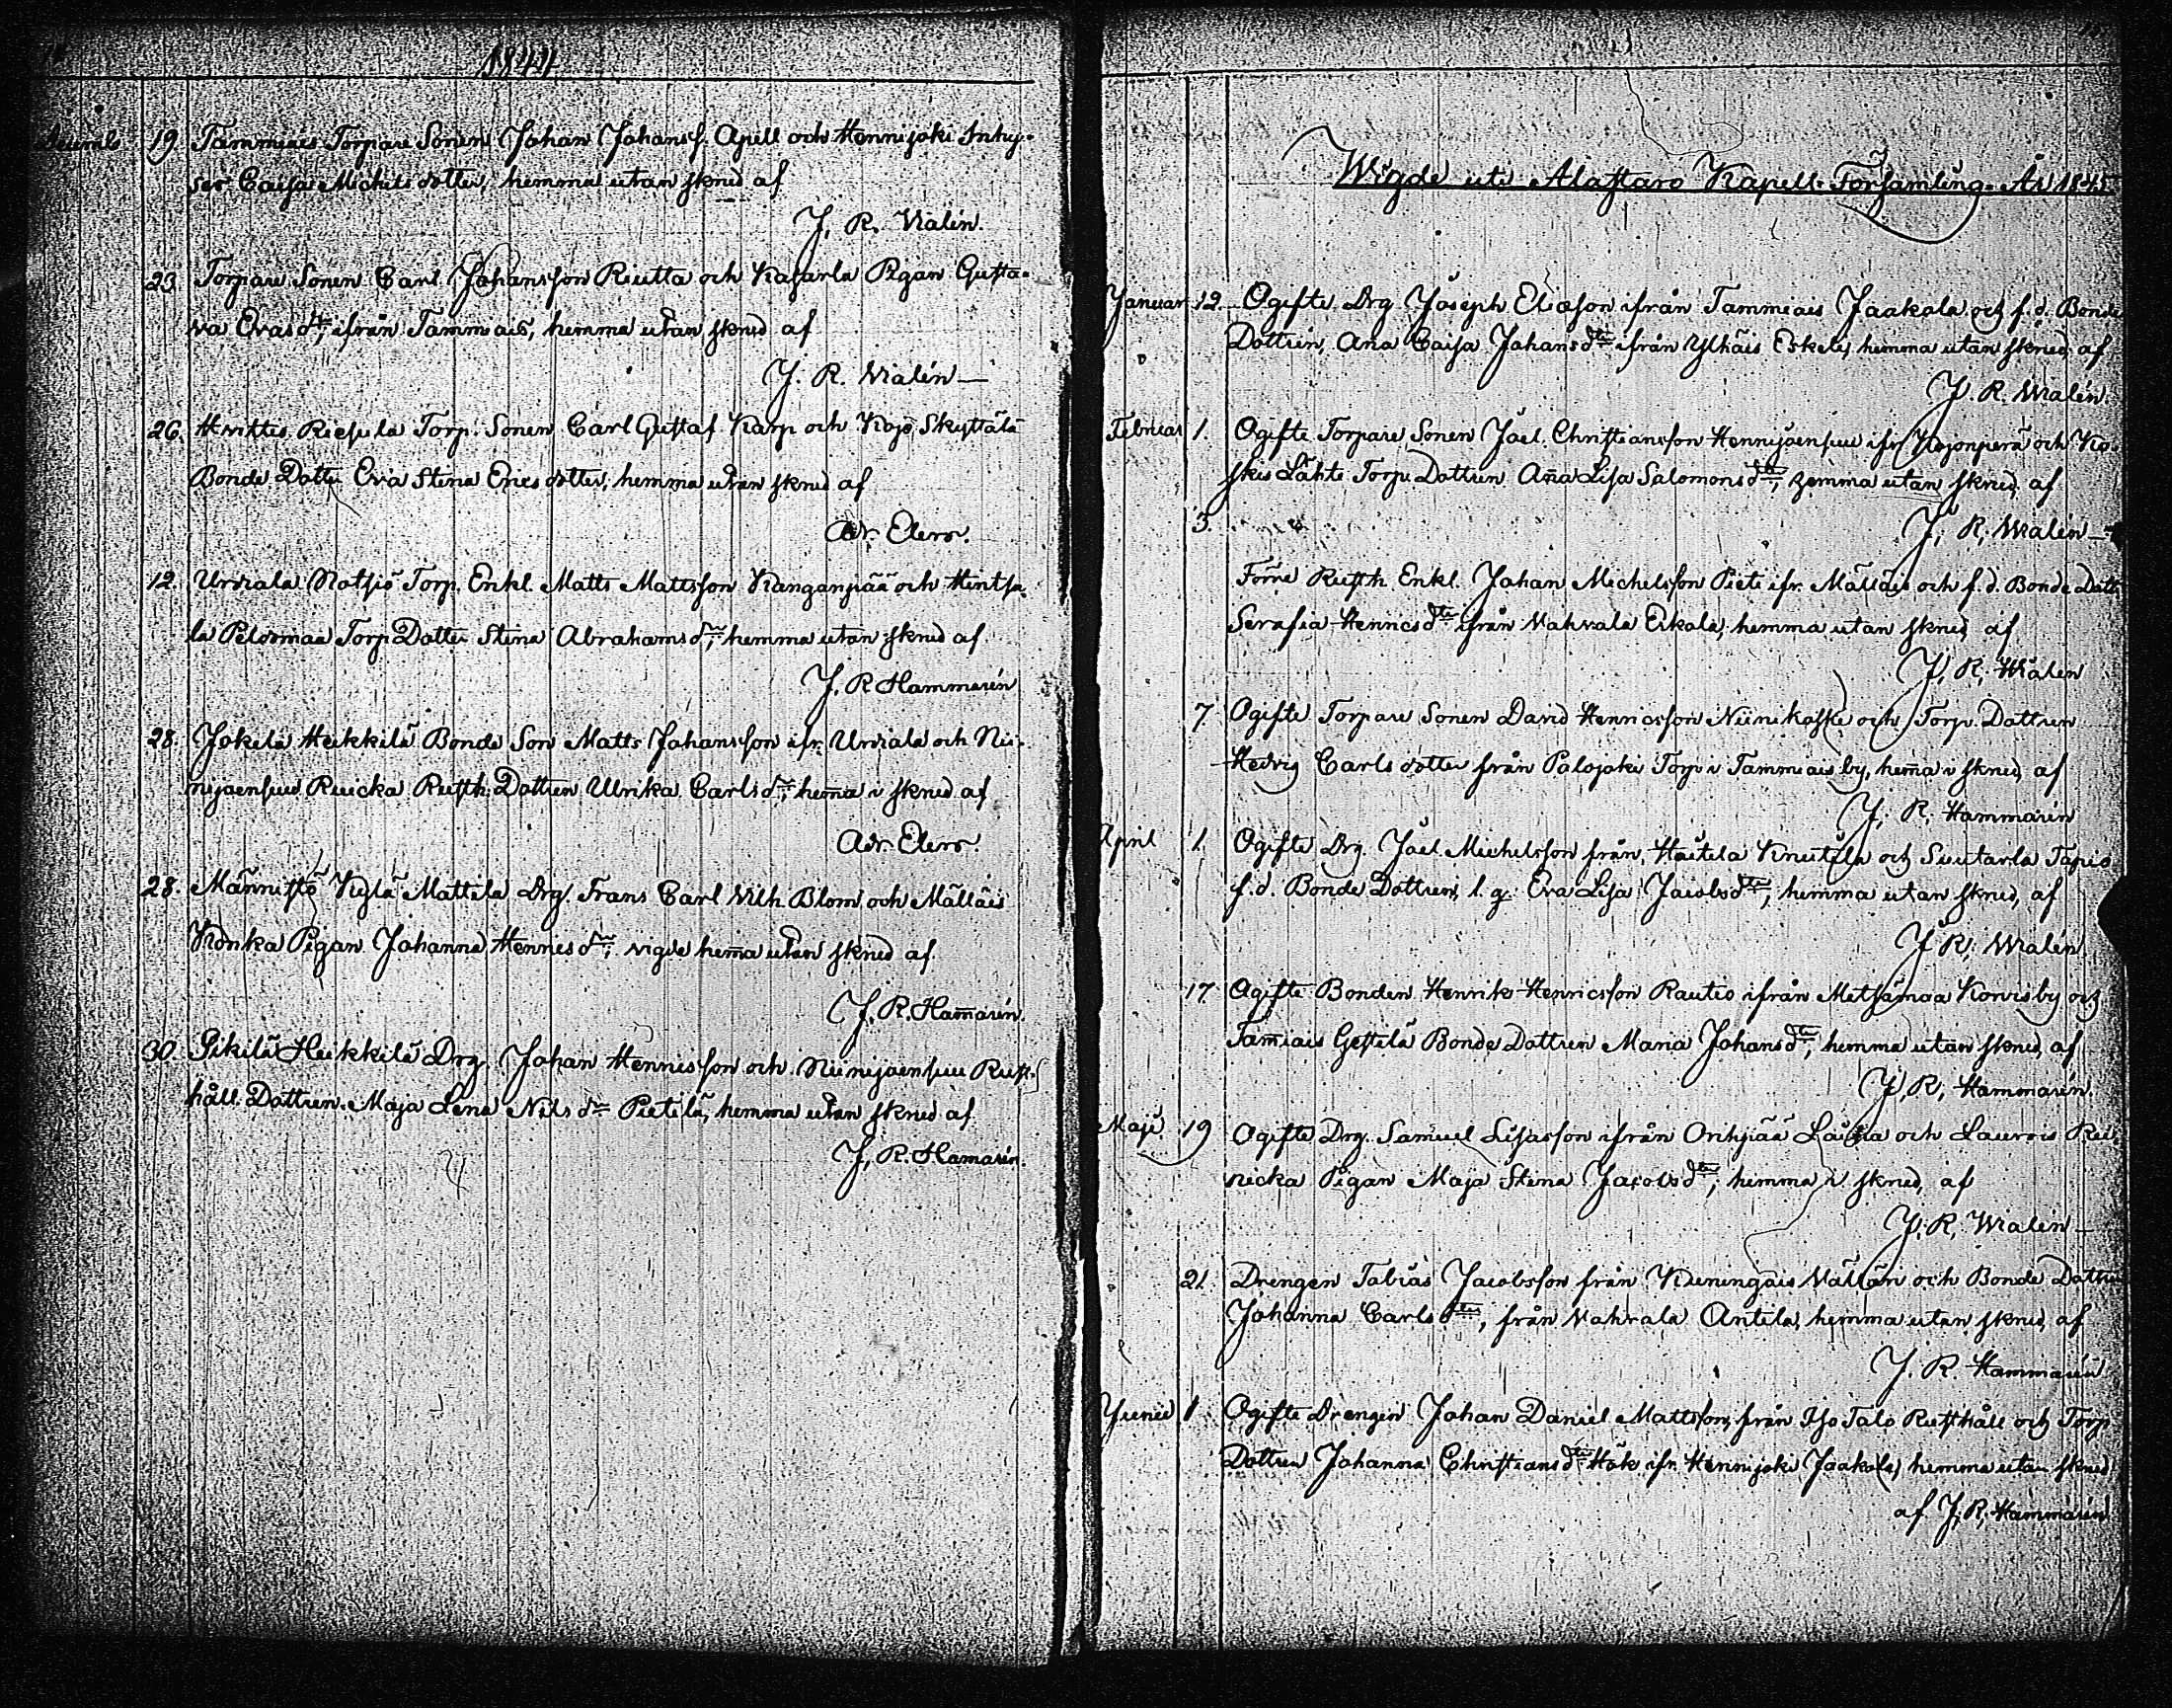 1844
Decemb. 19. Tammiais Torpare Sonen Johan Johansf. Apell och Hennijoki Inhy-
ses Caisa Michels dotter, hemma utan skred af
J. R. Walén.
23. Torpare Sonen Carl Johansson Riutta och Kasarla Pigan Gusta-
va Evas dtr, ifrån Tammiais, hemma utan skred af
J. R. Walén
26. Hvittis Riesula Torp. Sonen Carl Gustaf Karp och Kojo Skyttälä
Bonde Dotter Eva Stina Erics dotter, hemma utan skred af
Adr. Elers.
12. Urviala Notsjö Torp. Enkl. Matts Mattsson Kanganpää och Hintsa-
la Peldomaa Torp Dotter Stina Abrahams dtr, hemma utan skred af
J. R. Hammarén
28. Jokela Heikkilä Bonde Son Matts Johansson ifr. Urviala och Nii-
nijoensuu Ruicka Rusth. Dottren Ulrika Carls dtr, hem̄a i skred af
Adr. Elers.
28. Männistö Kylä Mattila Drg. Frans Carl Vilh. Blom och Mälläis
Konka Pigan Johanna Henrics dtr, vigde hem̄a utan skred af
J. R. Ham̄arén.
30. Pikilä Heikkilä Drg Johan Henricsson och Niinijoensuu Rust-
håll. Dottren Maja Lena Nils dtr Pietilä, hemma utan skred af
J. R. Hamarén.
Wigde uti Alastaro Kapell-Församling År 1845
Januar. 12. Ogifte Drg Joseph Eliæson ifrån Tammiais Jaakola och f. d. Bonde
Dottren, Ana Caisa Johans dtr ifrån Ylhäis Eskely hemma utan skred, af
J. R. Walén.
Februar 1. Ogifte Torpare Sonen Joel Christiansson Hennijoensuu ifr. Kojonperä och Ko-
skis Lähte Torp. Dottren An̄a Lisa Salomons dtr, hemma utan skred, af
J. R. Walén
3.
Förre Rusth. Enkl. Johan Michelsson Pieti ifr. Mälläis och f. d. Bonde Dottr.
Serafia Henrics dtr ifrån Vahvala Eikala, hemma utan skred, af
J. R. Walén
7. Ogifte Torpare Sonen David Henricsson Niinikoski och Torp. Dottren
Hedvig Carls dotter från Palojoki Torp i Tammiais by, hem̄a i skred, af
J. R. Hammarén
April 1. Ogifte Drg. Joel Michelsson från Haitela Knutila och Suutarla Tapio
f. d. Bonde Dottren, l. g. Eva Lisa Jacobs dtr, hemma utan skred, af
J. R. Walén
17. Ogifte Bonden Henrik Henricsson Rautio ifrån Metsämaa Korvis by och
Tam̄iais Gestilä Bonde Dottren Maria Johans dtr, hemma utan skred, af
J. R. Hammarén.
Maji 19 Ogifte Drg. Samuel Lisasson ifrån Orihpää och Laurois Rei-
nicka Pigan Maja Stina Jacobs dtr, hemma i skred, af
J. R. Walén
21. Drengen Tobias Jacobsson från Kuningais och Bonde Dottren
Johanna Carls dtr, från Vahvala Antila, hemma utan skred, af
J. R. Hammarén
Junii 1 Ogifte Drengen Johan Daniel Mattsson, från Iso Talo Rusthåll och Torp.
Dottren Johanna Christians dtr Hök ifr. Hennijoki Jaakola, hemma utan skred
af J. R. Hammarén